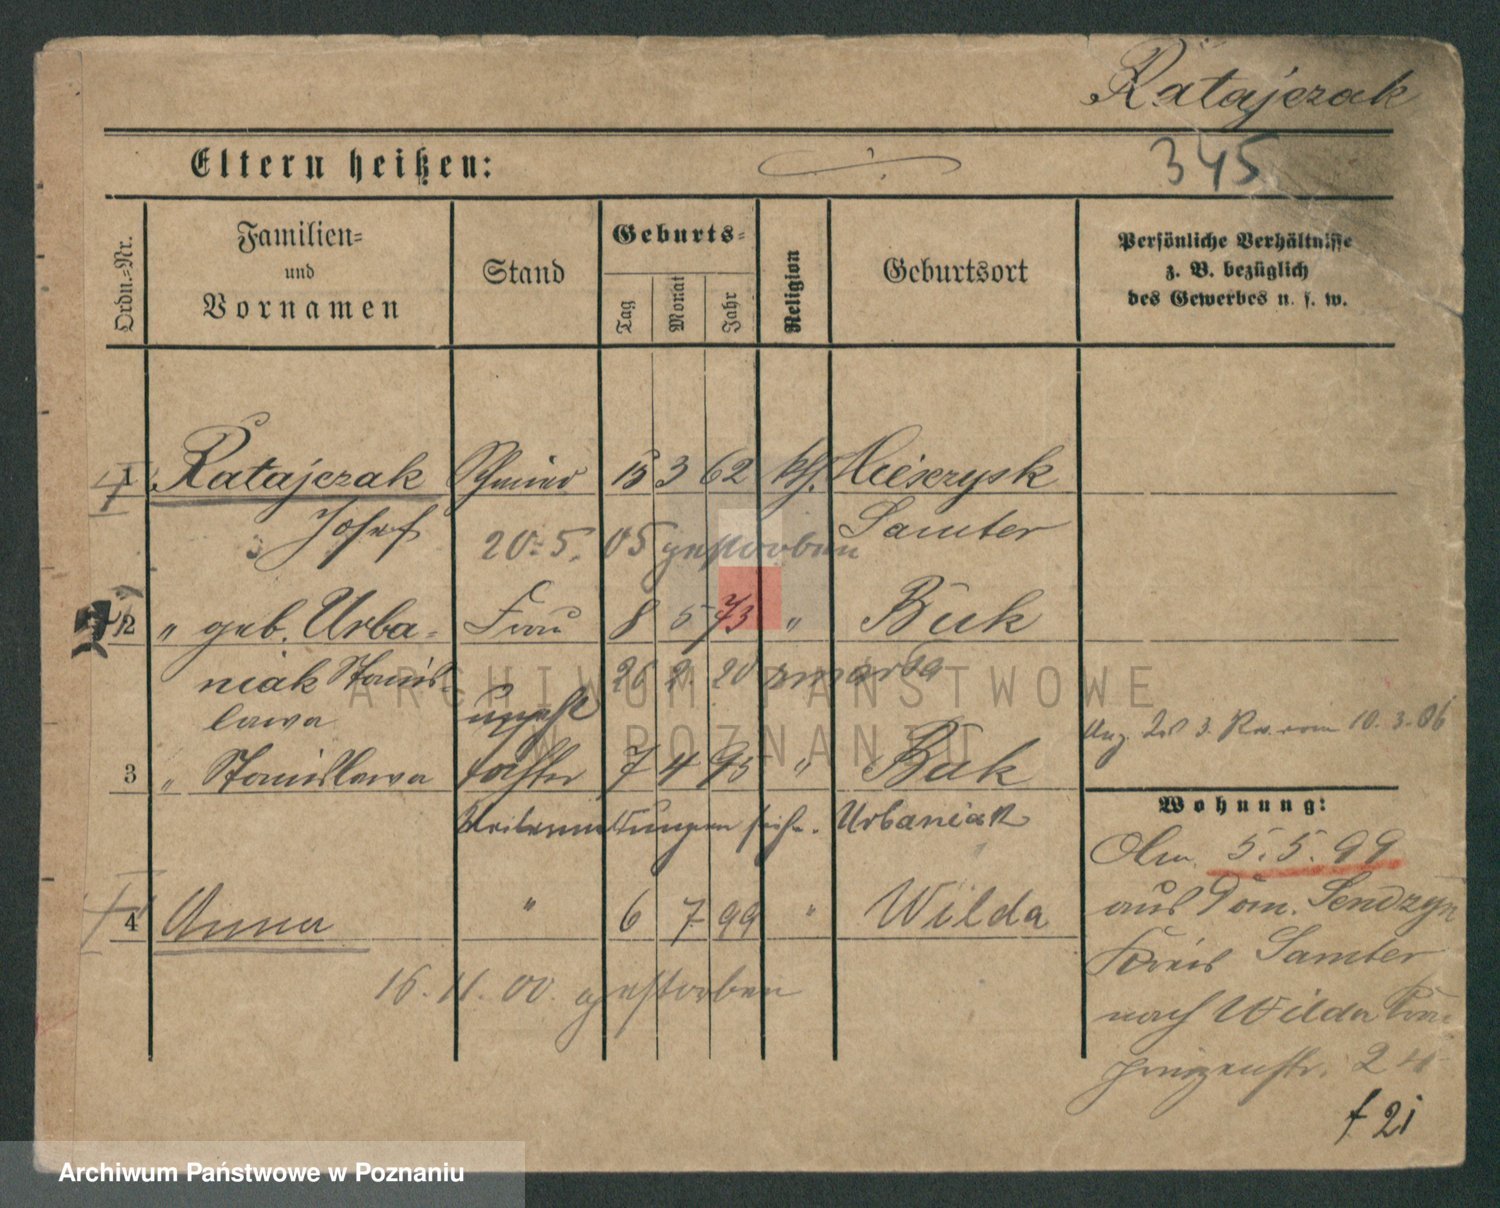 Ratajczak
Eltern heißen:
345
Ordn.-Nr.
Familien- und Vornamen
Stand
Geburts-
Tag
Monat
Jahr
Religion
Geburtsort
Persönliche Verhältnisse
z. B. bezüglich
des Gewerbes u. s. w.
1 Ratajczak 15 3 62 kth.
Josef Samter
20. 5. 05 gestorben
2 " geb. Urba- Frau 8 5 73 " Buk
niak Stanis- 26 2 20 zmarła
lawa unehl
10.3.06
3 " Stanislawa Tochter 7 4 95 " Buk
siehe Urbaniak
Wohnung:
5.5.99
aus Dom. Sendzyn
Kreis Samter
nach Wilda Kron
prinzenstr.
4 Anna " 6 7 99 " Wilda
16. 11. 00. gestorben
f 21
ARCHIWUM PAŃSTWOWE
W POZNANIU
Archiwum Państwowe w Poznaniu